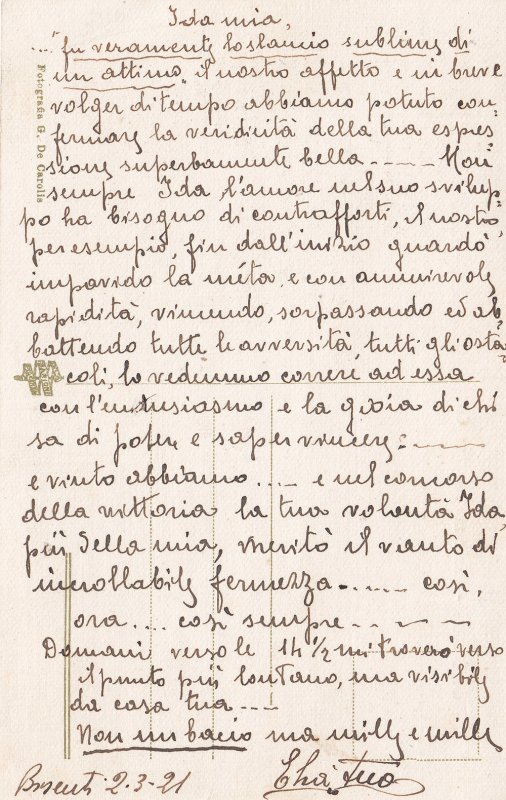 Ida mia,
...." fu veramente lo slancio sublime di
un attimo„ il nostro affetto e in breve
volger di tempo abbiamo potuto con-
fermare la veridicità della tua espres-
sione superbamente bella ----- Non
sempre Ida, l'amore nel suo svilup-
po ha bisogno di contrafforti, il nostro,
per esempio, fin dall'inizio guardò
impavido la méta, e con ammirevole
rapidità, vincendo, sorpassando ed ab-
battendo tutte le avversità, tutti gli osta-
coli, lo vedemmo correre ad essa
con l'entusiasmo e la gioia di chi
sa di potere e saper vincere: ——
e vinto abbiamo .... e nel concorso
della vittoria la tua volontà Ida,
più della mia, meritò il vanto di
incrollabile fermezza ----- così,
ora .... così sempre -- - - -
Domani verso le 14 ½ mi troverò verso
il punto più lontano, ma visibile
da casa tua ----
Non un bacio ma mille e mille
2-3-21 tuo
Fotografia G. De Carolis